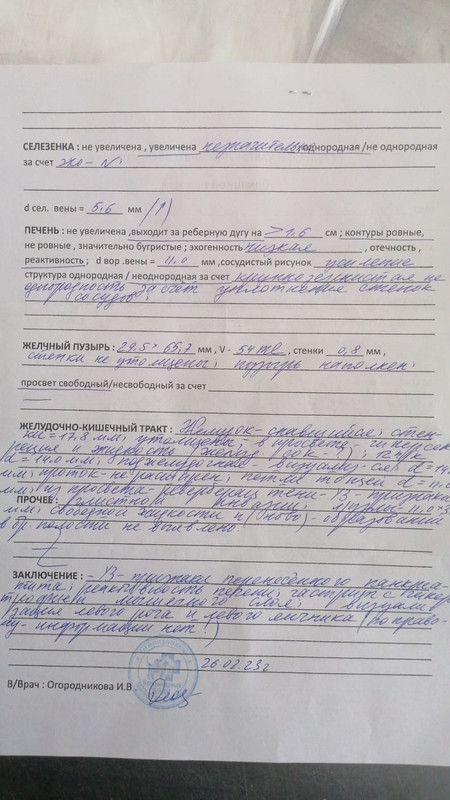 СЕЛЕЗЕНКА : не увеличена , увеличена незначительно; однородная /не однородная
за счет эхо-N;
d сел. вены = 5,6 мм /↑/
ПЕЧЕНЬ : не увеличена ,выходит за реберную дугу на >1.6 см ; контуры ровные,
не ровные , значительно бугристые ; эхогенность низкая , отечность ,
реактивность ; d вор .вены = 11.0 мм ,сосудистый рисунок усиление
структура однородная / неоднородная за счет крупнозернистая не
однородность за счет уплотнения стенок
сосудов;
ЖЕЛЧНЫЙ ПУЗЫРЬ : 29.5 * 65,7 мм , V - 54 ml , стенки 0,8 мм ,
стенки не утолщены; пузырь наполнен;
просвет свободный/несвободный за счет
ЖЕЛУДОЧНО-КИШЕЧНЫЙ ТРАКТ : Желудок-спавшийся; стен-
ки = 17,8 мм; утолщены; в просвете - гиперсек
реция и жидкость (желуд. сок
d = 14.0 мм; поджелудочная - визуализ-ся; d = 14.
мм; проток-не расширен; петли тощей d = 11.0
мм; из просвета - веверообр. тени - УЗ - признаки
ПРОЧЕЕ : глистной инвазии;
мм; свободной жидкости и (ново)-образований
в бр. полости не выявлено
ЗАКЛЮЧЕНИЕ : - УЗ - признаки перенесенного панкреа-
тита; реактивность печени; гастрит с гипер
трофией мышечного слоя; визуали
зация левого рога и левого яичника (по право-
му - информации нет!)
26.02.23г
В/Врач : Огородникова И.В .